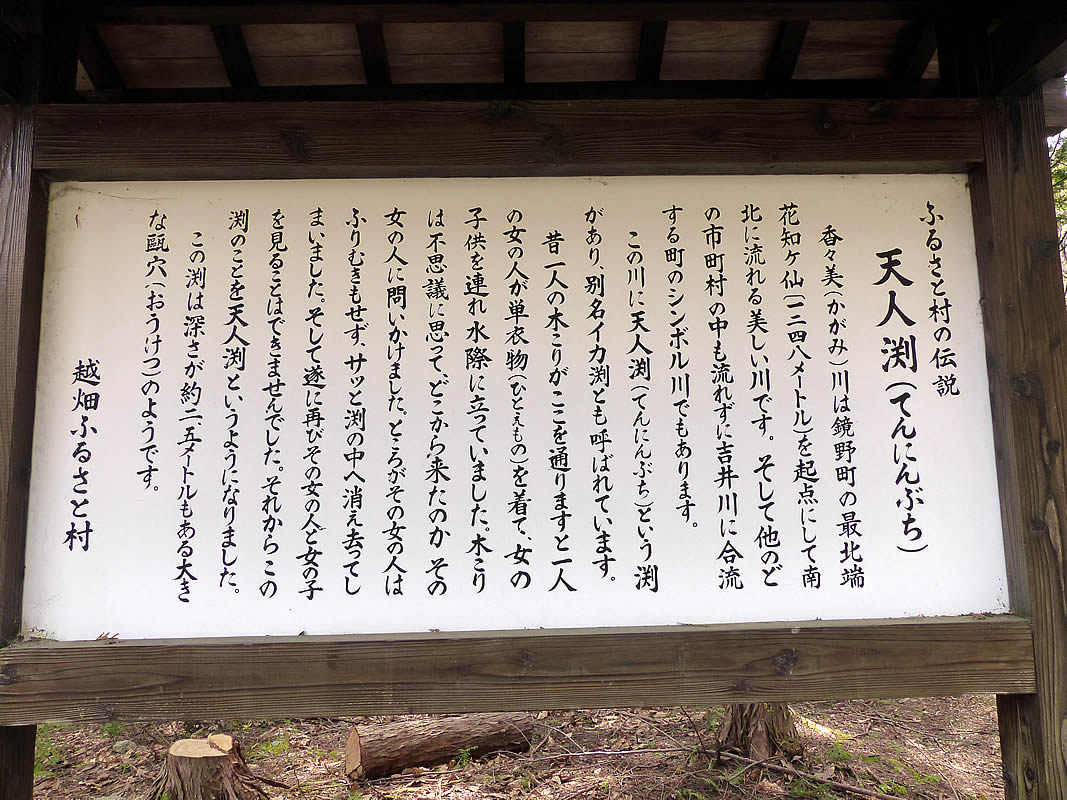 ふるさと村の伝説
天人渕(てんにんぶち)
香々美(かがみ)川は鏡野町の最北端
花知ケ仙(一二四八メートル)を起点にして南
北に流れる美しい川です。そして他のど
の市町村の中も流れずに吉井川に合流
する町のシンボル川でもあります。
この川に天人渕(てんにんぶち)という渕
があり、別名イカ渕とも呼ばれています。
昔一人の木こりがここを通りますと一人
の女の人が単衣物(ひとえもの)を着て、女の
子供を連れ水際に立っていました。木こり
は不思議に思って、どこから来たのか その
女の人に問いかけました。ところがその女の人は
ふりむきもせず、サッと渕の中へ消え去ってし
まいました。そして遂に再びその女の人と女の子
を見ることはできませんでした。それからこの
渕のことを天人渕というようになりました。
この渕は深さが約二、五メートルもある大き
な甌穴(おうけつ)のようです。
越畑ふるさと村